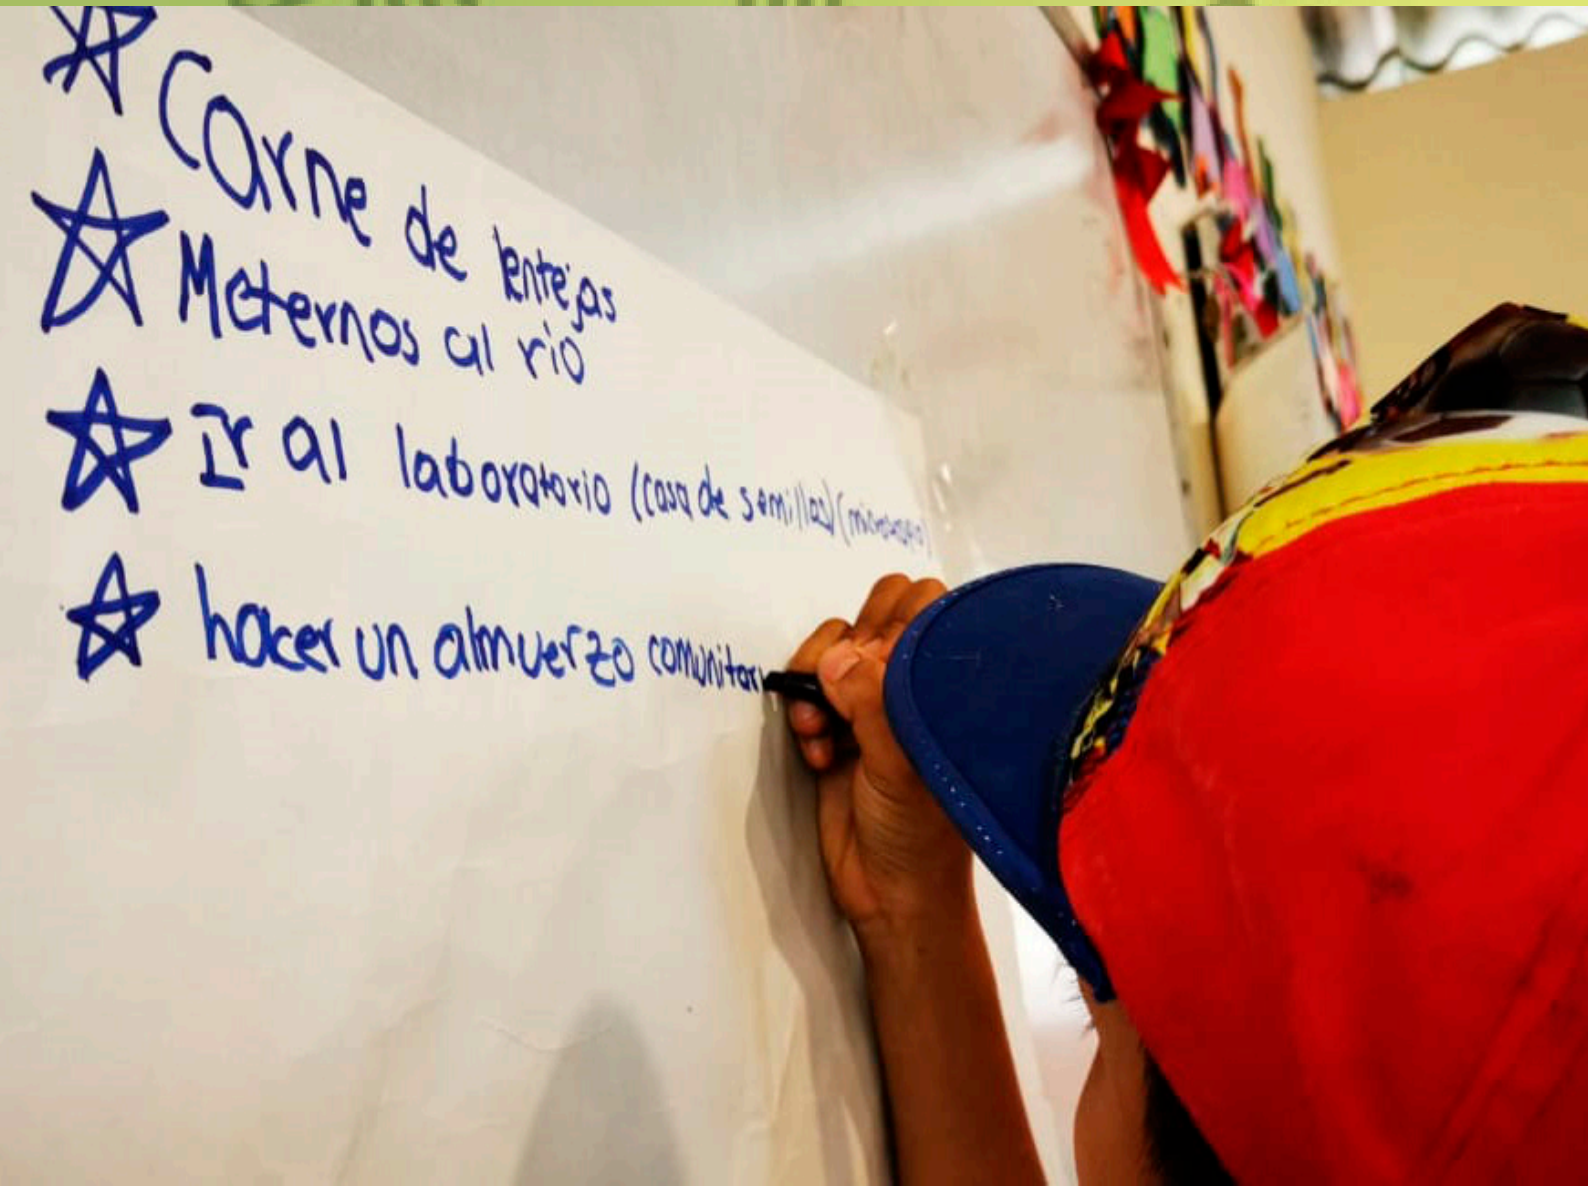 Carne de lentejas
Meternos al rio
Ir al laboratorio (casa de semillas) (microscopio)
hacer un almuerzo comunitari